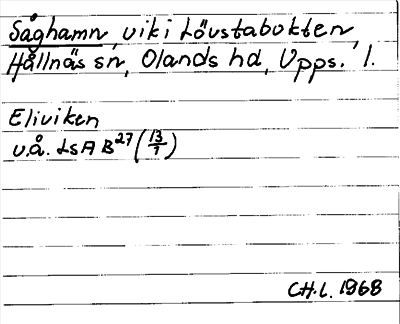 Såghamn, vik i Lövstabukten,
Hållnäs sn, Olands hd, Upps. l.
Eliviken
u.å. LsA B27 (13/7)
C.H.L. 1968